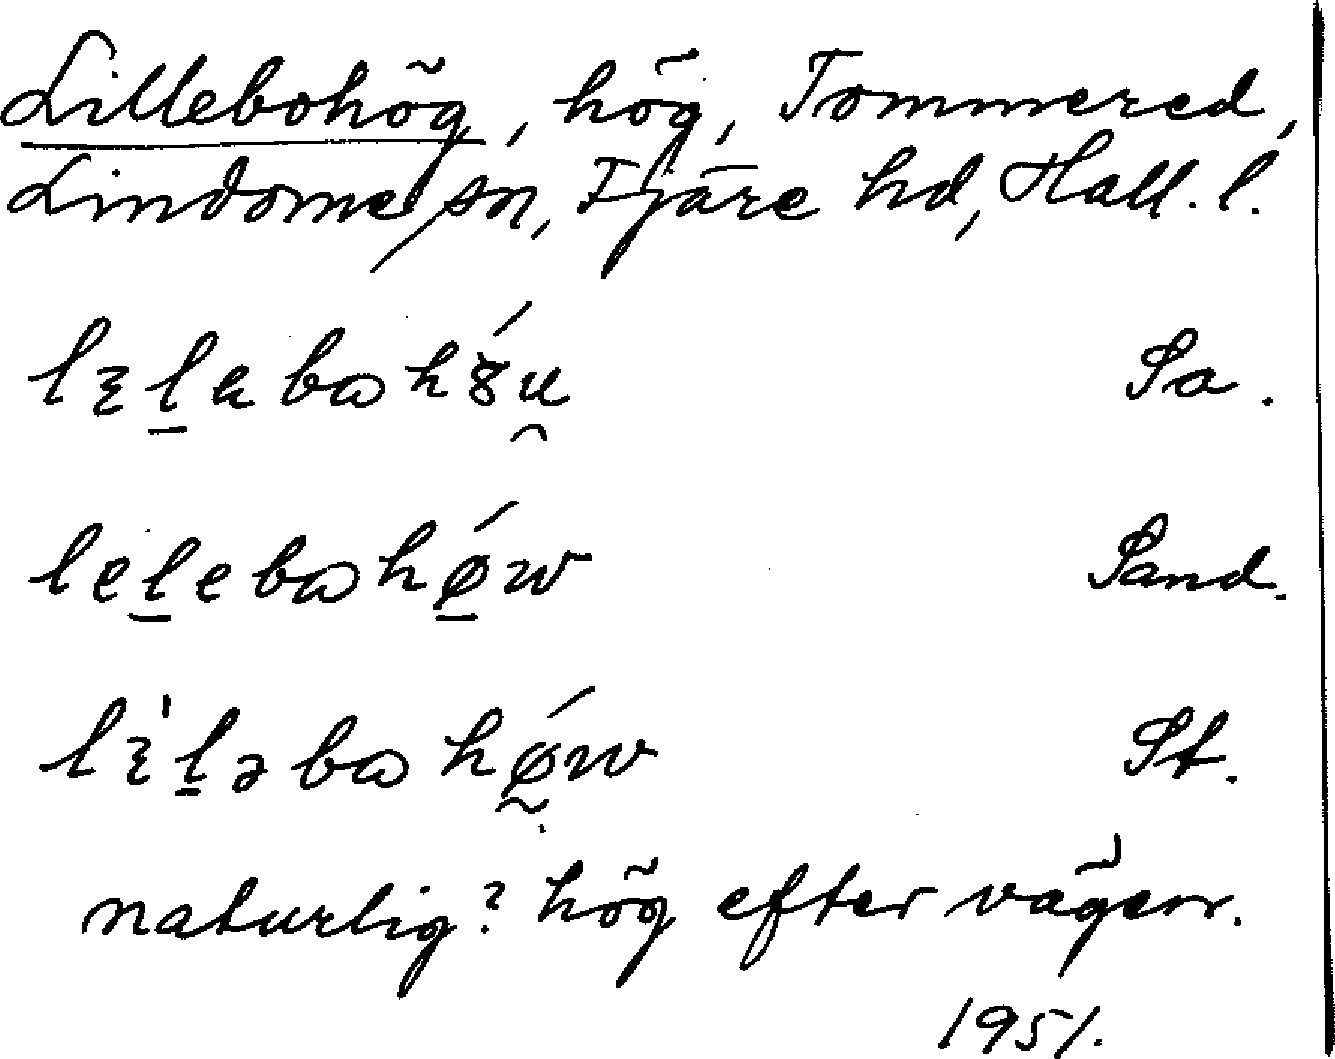 Lillebohög, hög, Tommered,
Lindome sn, Fjäre hd, Hall. l.
Sa.
Sand.
St.
naturlig? hög efter vägen.
1951.